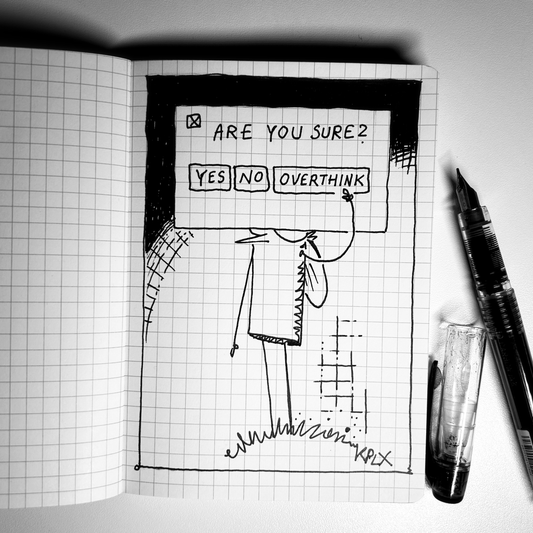 ARE YOU SURE?
YES NO OVERTHINK
KPLX